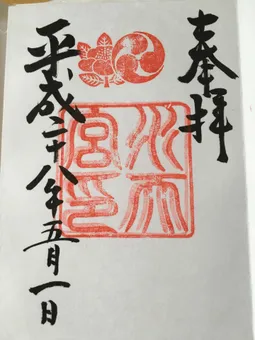 奉拝
水天
宮印
平成二十八年五月一日